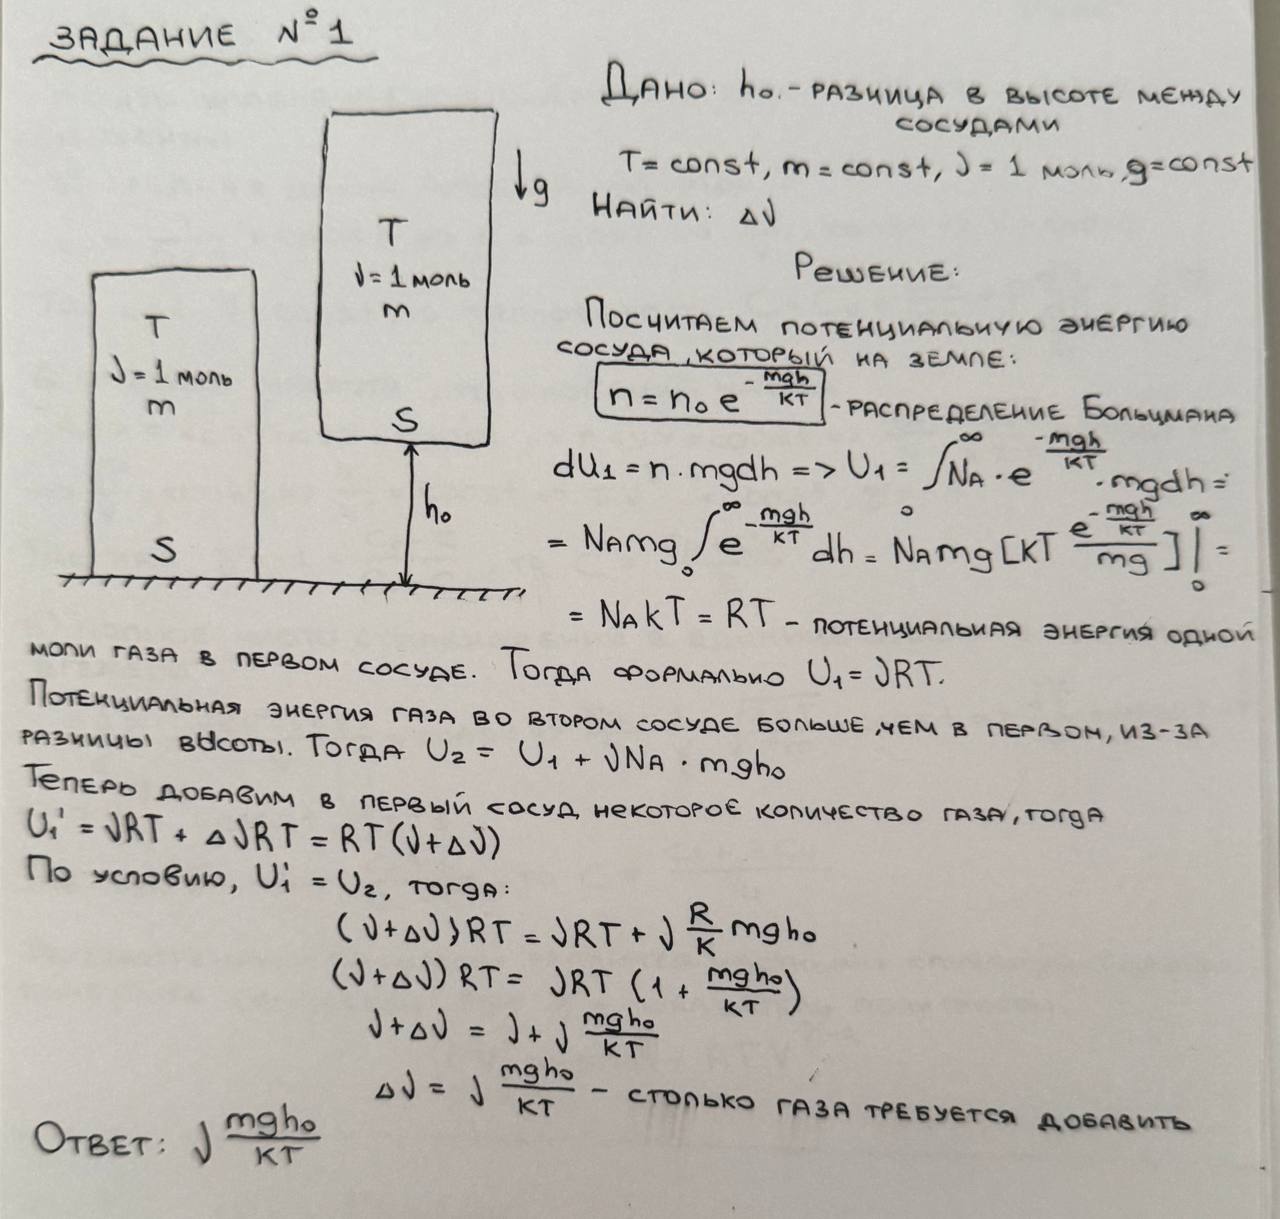 ЗАДАНИЕ №1
ДАНО: h₀ - РАЗНИЦА В ВЫСОТЕ МЕЖДУ
СОСУДАМИ
T = const, m = const, ν = 1 моль, g = const
НАЙТИ: Δν
РЕШЕНИЕ:
T
ν = 1 моль
m
S
T
ν = 1 моль
m
S
↓g
h₀
ПОСЧИТАЕМ ПОТЕНЦИАЛЬНУЮ ЭНЕРГИЮ
СОСУДА, КОТОРЫЙ НА ЗЕМЛЕ:
n = n₀ e^(-mgh/KT) - РАСПРЕДЕЛЕНИЕ БОЛЬЦМАНА
dU₁ = n · mgdh => U₁ = ∫₀^∞ N_A · e^(-mgh/KT) · mgdh =
= N_A mg ∫₀^∞ e^(-mgh/KT) dh = N_A mg [KT e^(-mgh/KT)/mg] |₀^∞ =
= N_A kT = RT - ПОТЕНЦИАЛЬНАЯ ЭНЕРГИЯ ОДНОЙ
МОЛИ ГАЗА В ПЕРВОМ СОСУДЕ. ТОГДА ФОРМАЛЬНО U₁ = νRT.
ПОТЕНЦИАЛЬНАЯ ЭНЕРГИЯ ГАЗА ВО ВТОРОМ СОСУДЕ БОЛЬШЕ, ЧЕМ В ПЕРВОМ, ИЗ-ЗА
РАЗНИЦЫ ВЫСОТЫ. ТОГДА U₂ = U₁ + νN_A · mgh₀
ТЕПЕРЬ ДОБАВИМ В ПЕРВЫЙ СОСУД НЕКОТОРОЕ КОЛИЧЕСТВО ГАЗА, ТОГДА
U₁' = νRT + ΔνRT = RT(ν+Δν)
ПО УСЛОВИЮ, U₁' = U₂, ТОГДА:
(ν+Δν)RT = νRT + ν R/K mgh₀
(ν+Δν)RT = νRT (1 + mgh₀/KT)
ν+Δν = ν+ν mgh₀/KT
Δν = ν mgh₀/KT - СТОЛЬКО ГАЗА ТРЕБУЕТСЯ ДОБАВИТЬ
ОТВЕТ: ν mgh₀/KT